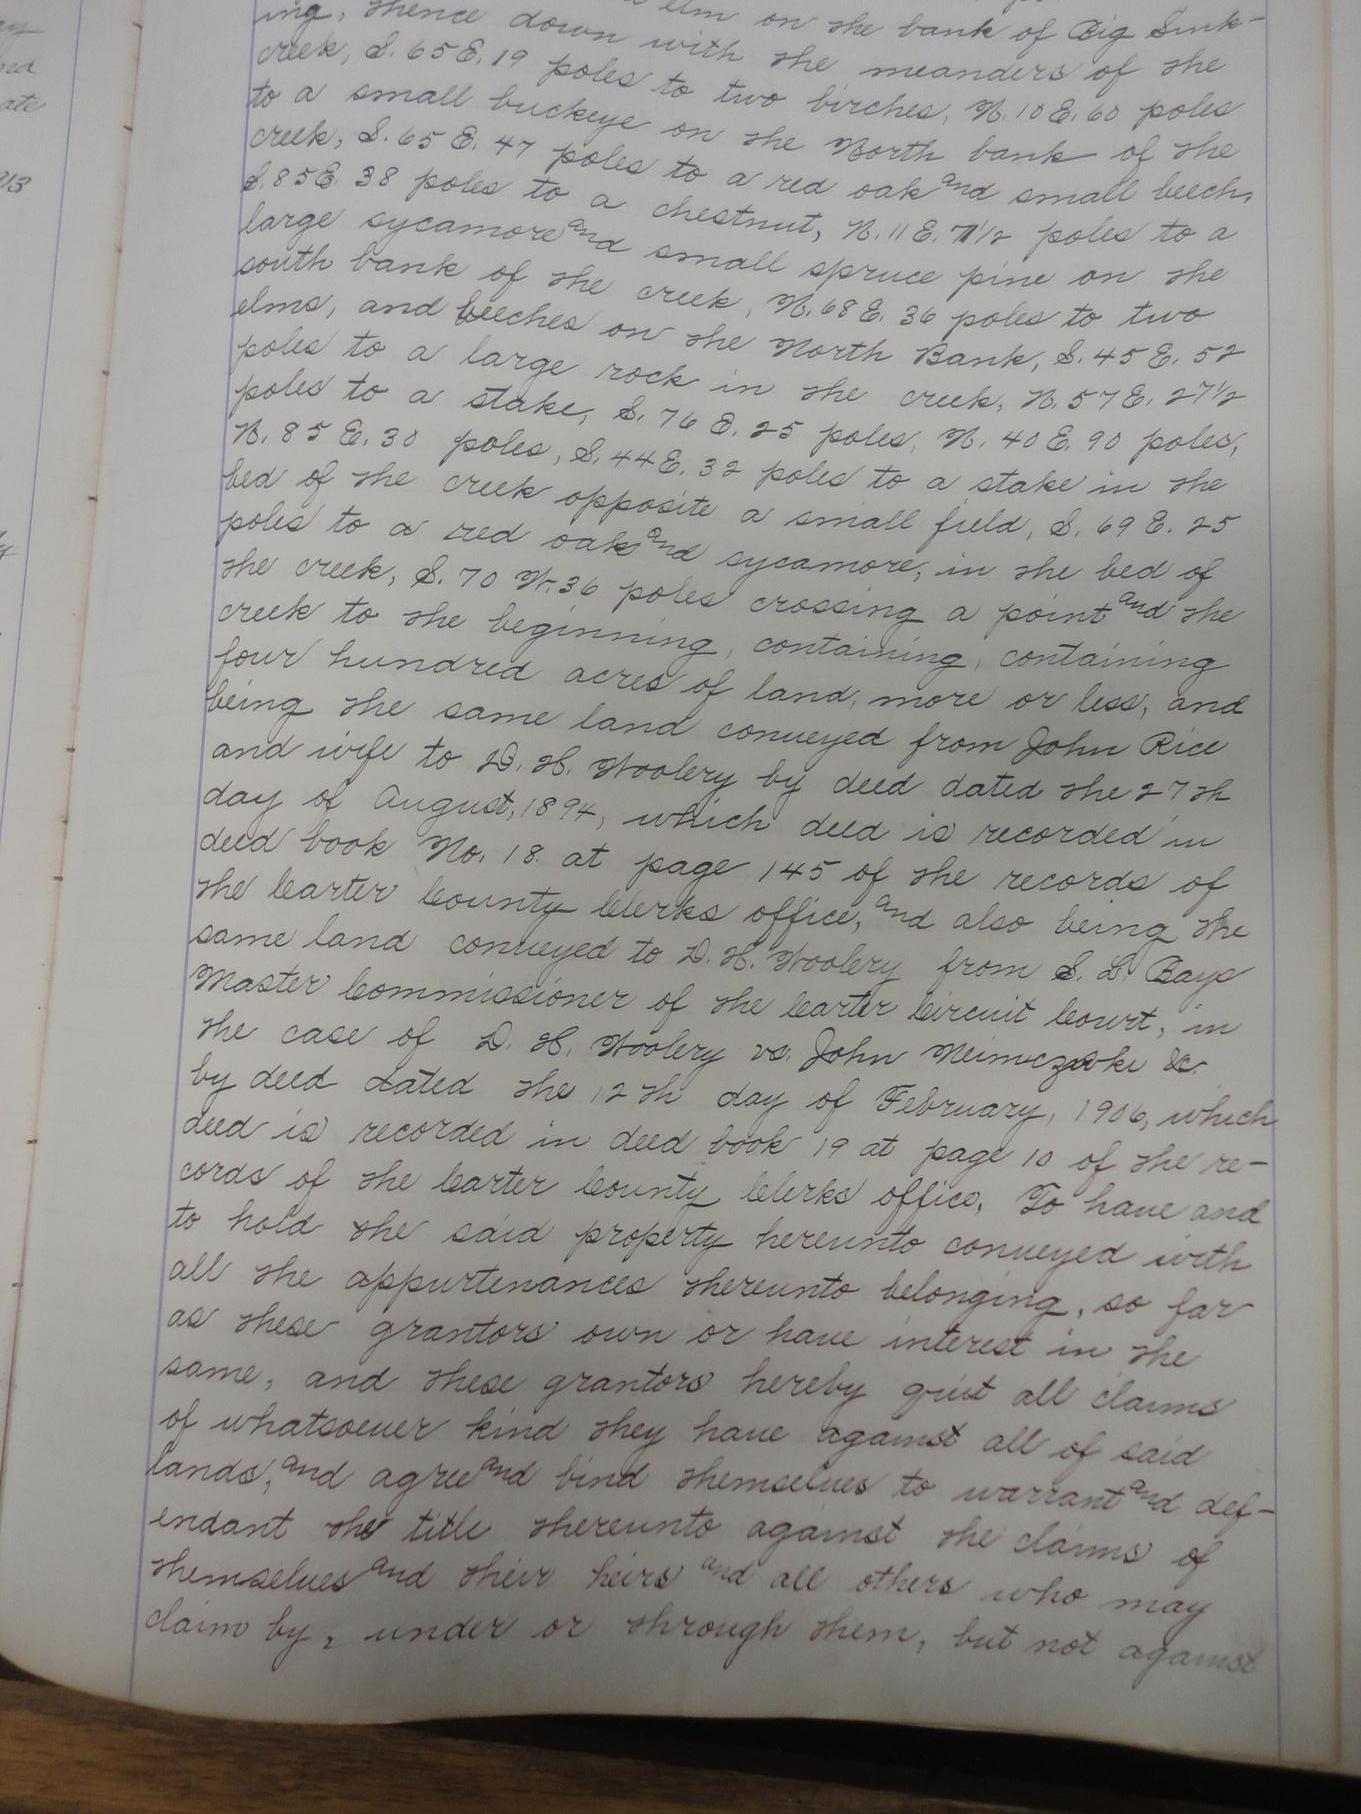 ing, thence down with the meanders of the
elm on the bank of Big Sink-
creek, S. 65 E. 19 poles to two birches, N. 10 E. 60 poles
to a small buckeye on the North bank of the
creek, S. 65 E. 47 poles to a red oak and small beech,
S. 85 E. 38 poles to a chestnut, N. 11 E. 71 1/2 poles to a
large sycamore and small spruce pine on the
south bank of the creek, N. 68 E. 36 poles to two
elms, and beeches on the North Bank, S. 45 E. 52
poles to a large rock in the creek, N. 57 E. 27 1/2
poles to a stake, S. 76 E. 25 poles, N. 40 E. 90 poles,
N. 85 E. 30 poles, S. 44 E. 32 poles to a stake in the
bed of the creek opposite a small field, S. 69 E. 25
poles to a red oak and sycamore, in the bed of
the creek, S. 70 W. 36 poles crossing a point and the
creek to the beginning, containing, containing
four hundred acres of land, more or less, and
being the same land conveyed from John Rice
and wife to D. H. Woolery by deed dated the 27th
day of August, 1894, which deed is recorded in
deed book No. 18 at page 145 of the records of
the Carter County Clerks office, and also being the
same land conveyed to D. H. Woolery from S. L. Bays
Master Commissioner of the Carter Circuit Court, in
the case of D. H. Woolery vs. John &c.
by deed dated the 12th day of February, 1906, which
deed is recorded in deed book 19 at page 10 of the re-
cords of the Carter County Clerks office, To have and
to hold the said property hereunto conveyed with
all the appurtenances thereunto belonging, so far
as these grantors own or have interest in the
same, and these grantors hereby quit all claims
of whatsoever kind they have against all of said
lands, and agree and bind themselves to warrant and def-
endant the title thereunto against the claims of
themselves and their heirs and all others who may
claim by, under or through them, but not against